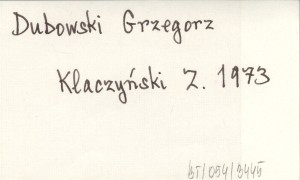 Dubowski Grzegorz
Kłaczyński Z. 1973
BT/054/3445